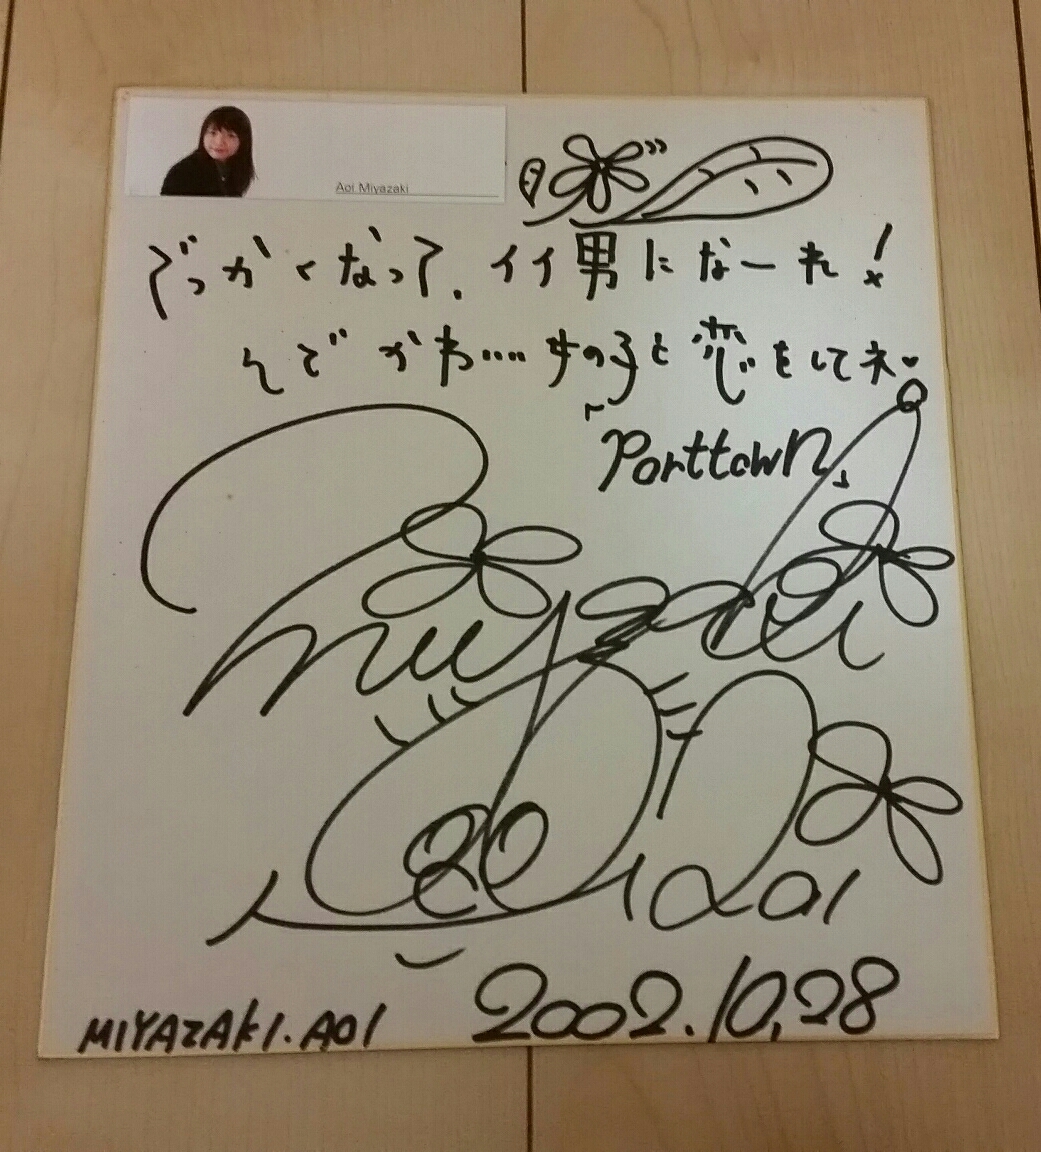 Aoi Miyazaki
でっかくなって、イイ男になーれ!
んで かわ····女の子と恋をしてネ♥
「Porttown」
Miyazaki
Aoi
MIYAZAKI.AOI 2002.10.28